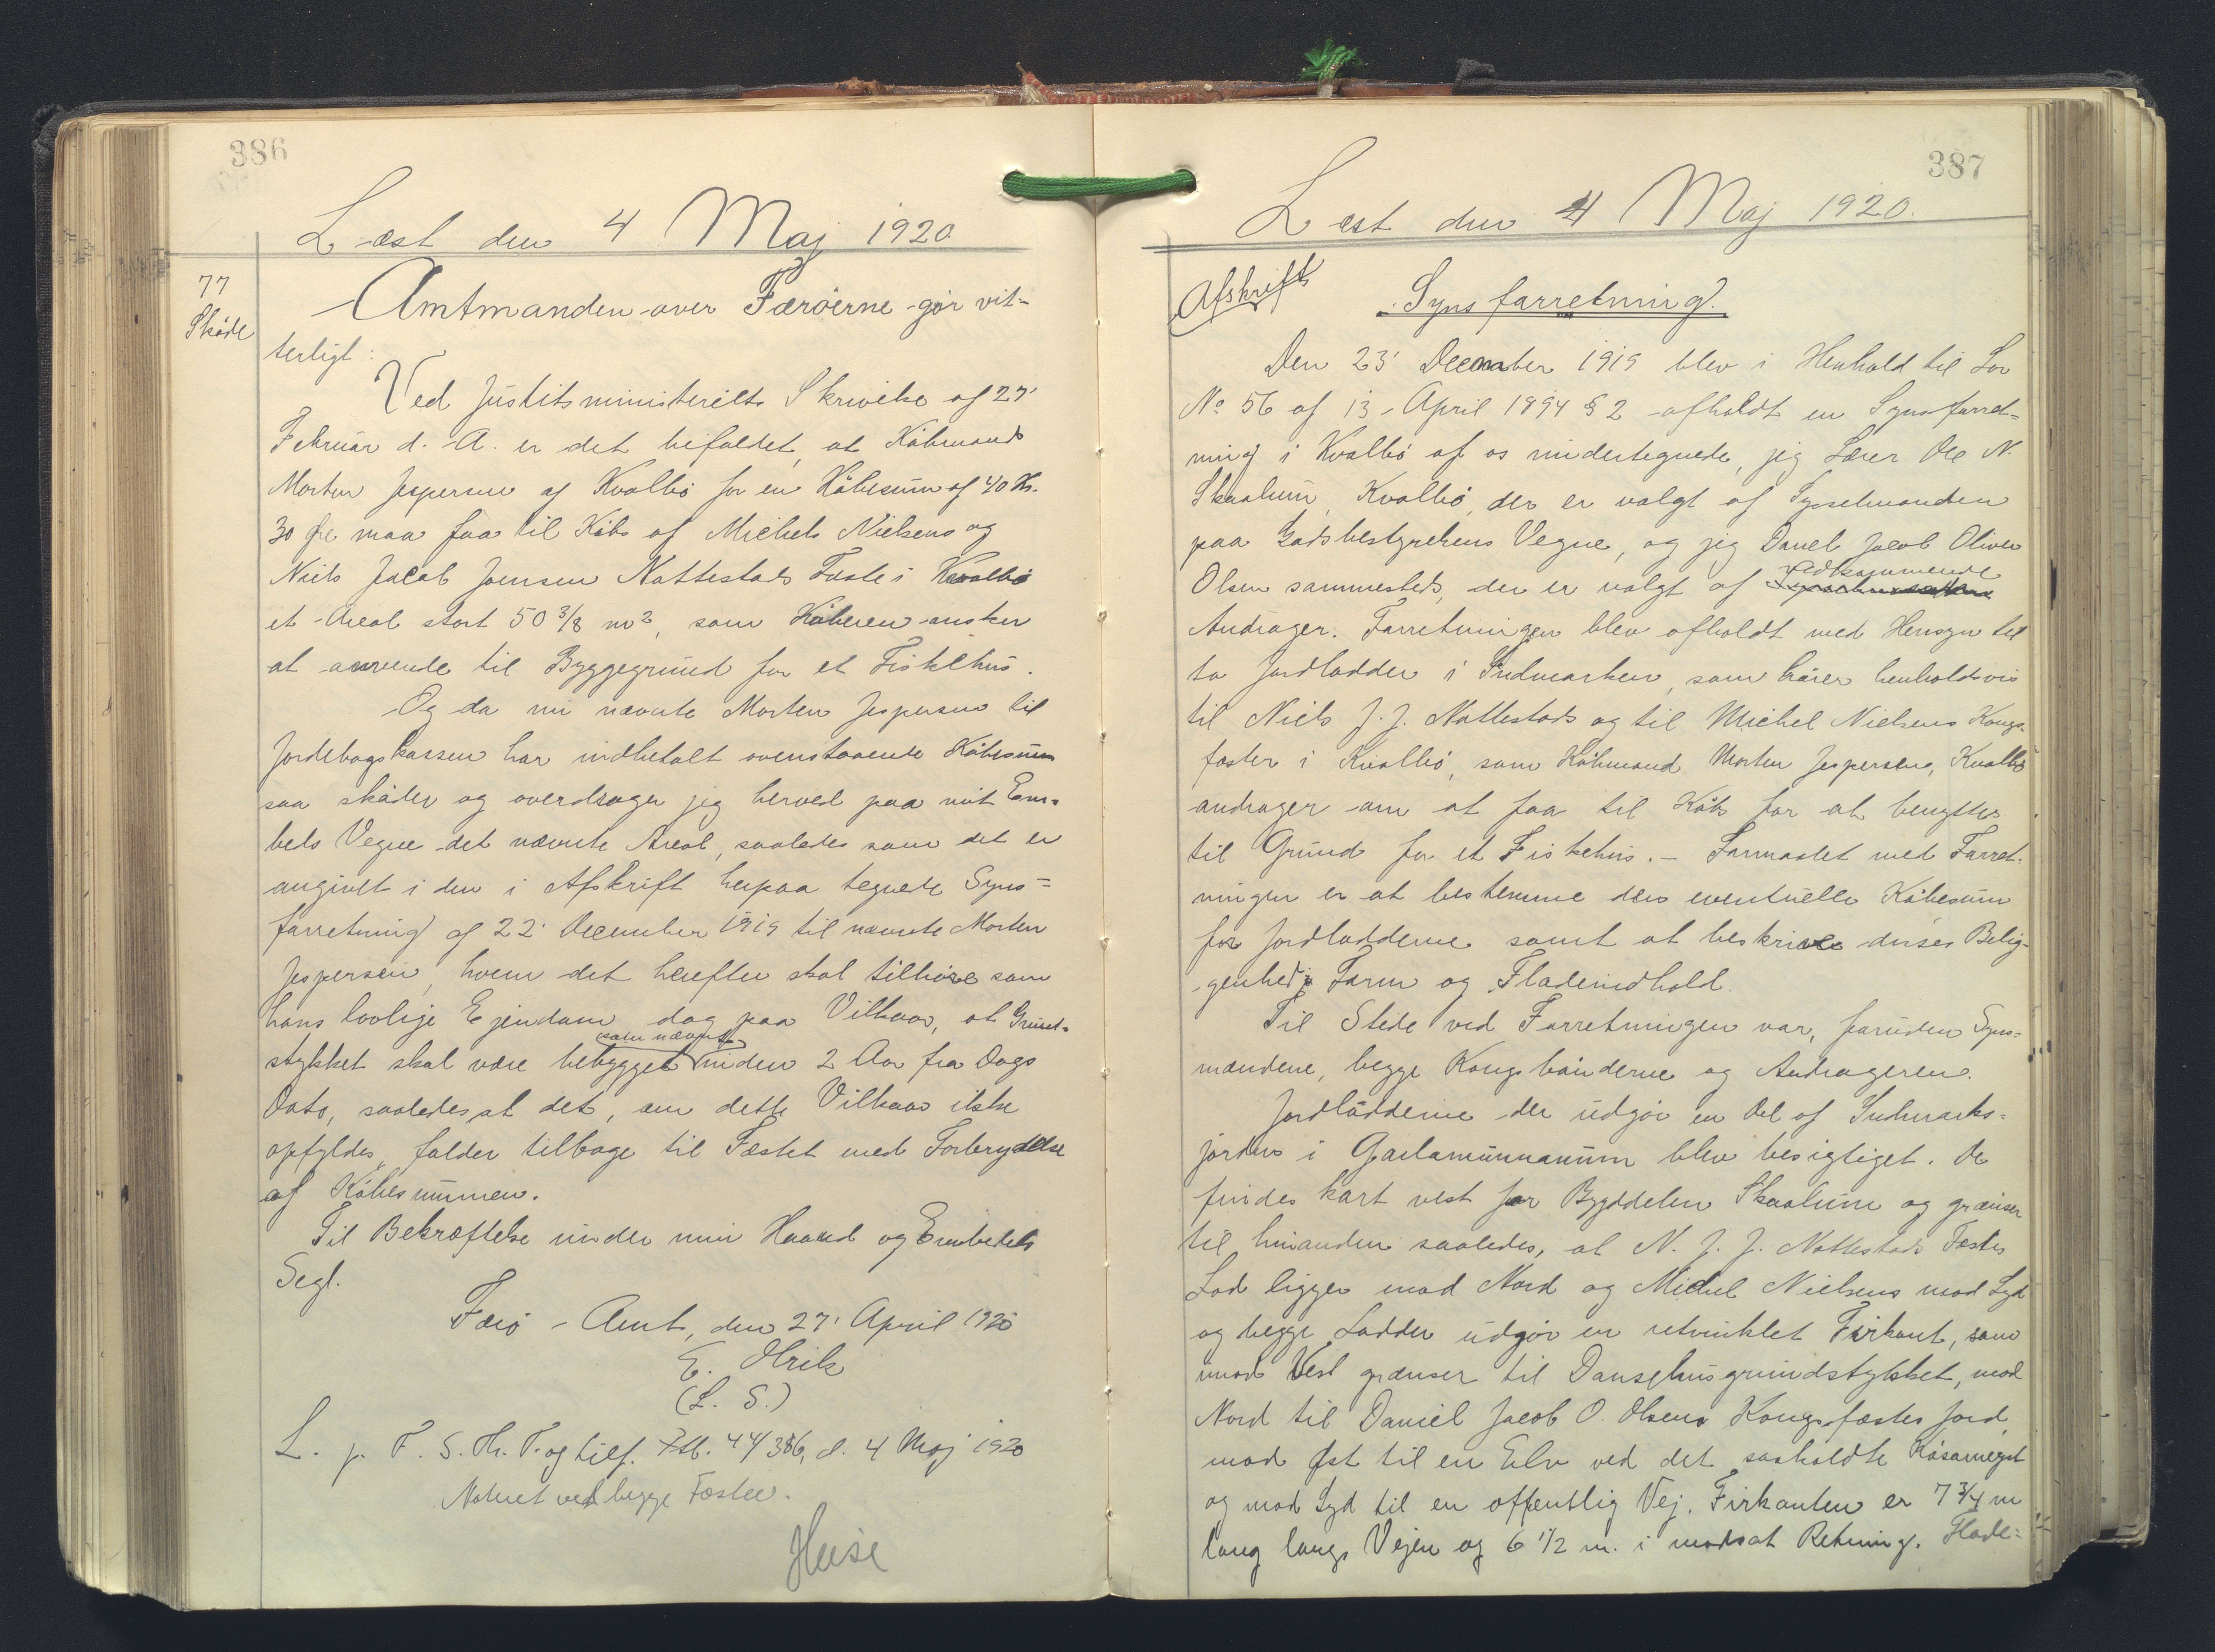 386
Læst den 4 Maj 1920
77
Skøde
Amtmanden over Færøerne gør vit-
terligt:
Ved Justitsministeriets Skrivelse af 27'
Februar d. A. er det bifaldet, at Købmand
Morten Jespersen af Kvalbø for en Købesum af 40 Kr.
30 Øre maa faa til Købs af Michels Nielsens og
Niels Jacob Joensen Nattestads Fæste i Kvalbø
et Areal stort 50 3/8 m2, som Køberen ønsker
at anvende til Byggegrund for et Fiskehus.
Og da nu nævnte Morten Jespersen til
Jordebogskassen har indbetalt ovenstaaende Købesum
saa skøder og overdrager jeg herved paa mit Em-
beds Vegne det nævnte Areal, saaledes som det er
angivet i den i Afskrift herpaa tegnede Syns=
forretning af 22' December 1919 til nævnte Morten
Jespersen, hvem det herefter skal tilhøre som
hans lovlige Ejendom dog paa Vilkaar, at Grund-
som nævnt
stykket skal være bebygget inden 2 Aar fra Dags
Dato, saaledes at det, om dette Vilkaar ikke
opfyldes, falder tilbage til Fæstet med Forbrydelse
af Købesummen.
Til Bekræftelse under min Haand og Embeds
Segl.
Færø Amt, den 27' April 1920
E. Olrik
(L. S.)
L. p. F. S. Th. T. og tilf. 44/386, d. 4 Maj 1920
Noteret ved begge Fæster.
387
Læst den 4 Maj 1920.
Afskrift
Synsforretning.
Den 23' December 1919 blev i Henhold til Lov
No 56 af 13 April 1894 § 2 afholdt en Synsforret=
ning i Kvalbø af os undertegnede, jeg Lærer Ole N.
Skaalum, Kvalbø, der er valgt af Sysselmanden
paa Godsbestyrelsens Vegne, og jeg Daniel Jacob Oliver
Olsen sammesteds, der er valgt af vedkommende
Andrager. Forretningen blev afholdt med Hensyn til
to Jordlodder i Indmarken, som hører henholdsvis
til Niels J. J. Nattestads og til Michel Nielsens Kongs-
fæster i Kvalbø, som Købmand Morten Jespersen, Kvalbø
andrager om at faa til Købs for at benyttes
til Grund for et Fiskehus. — Formaalet med Forret-
ningen er at bestemme den eventuelle Købesum
for Jordlodderne samt at beskrive disses Belig-
genhed, Form og Fladeindhold.
Til Stede ved Forretningen var, foruden Syns=
mændene, begge Kongsbønderne og Andrageren.
Jordlodderne der udgør en Del af Indmarks=
jorden i blev besigtiget. De
findes kort vest for Bygddelen Skaalum og grænser
til hinanden saaledes, at N. J. J. Nattestads Fæstes
Lod ligger mod Nord og Michel Nielsens mod Syd
og begge Lodder udgør en retvinklet Firkant, som
mod Vest grænser til Dansehusgrundstykket, mod
Nord til Daniel Jacob O. Olsens Kongsfæstes Jord,
mod Øst til en Elv ved det saakaldte
og mod Syd til en offentlig Vej. Firkanten er 7 3/4 m
lang langs Vejen og 6 1/2 m. i modsat Retning. Flade=